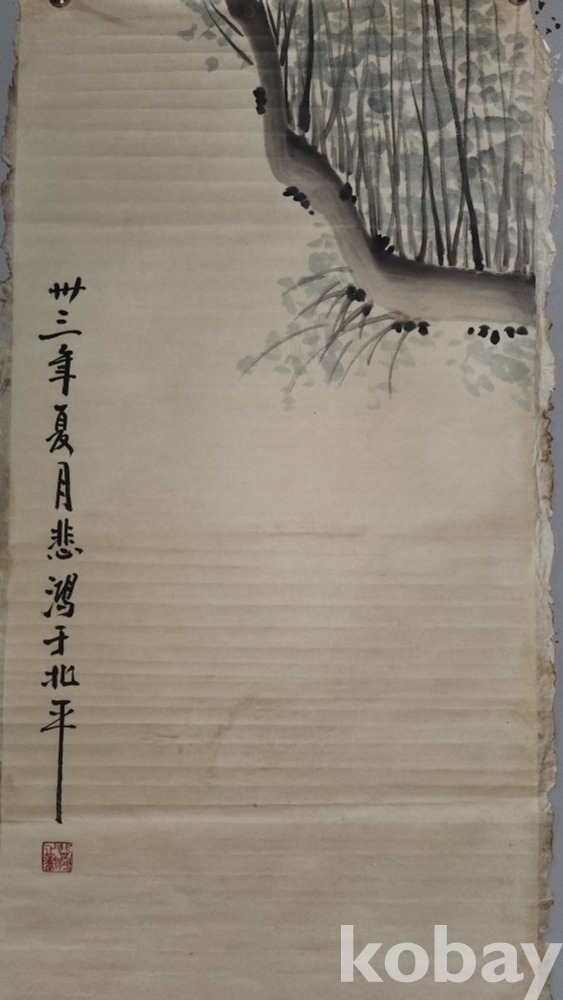 卅三年夏月悲鴻于北平
kobay